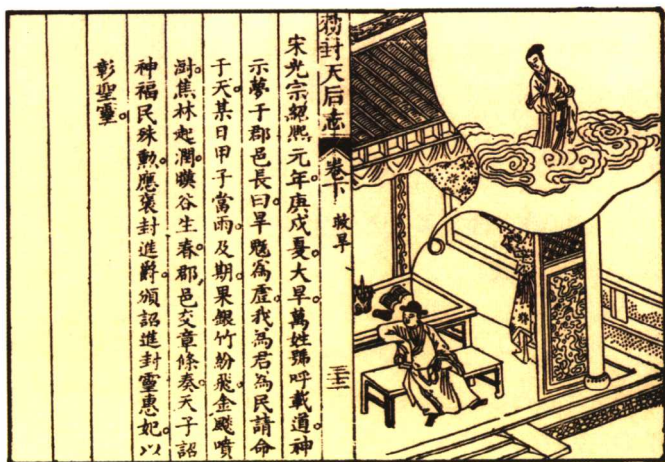 勅封天后志 卷下 救旱
宋光宗紹熙元年庚戌夏。大旱。萬姓號呼載道。神
示夢于郡邑長曰。旱魃為虐。我為君為民請命
于天。某日甲子當雨。及期。果銀竹紛飛。金飈噴
澍。焦林起潤。暵谷生春。郡邑交章條奏。天子詔
神福民殊勲。應褒封進爵。頒詔進封靈惠妃。以
彰聖靈。